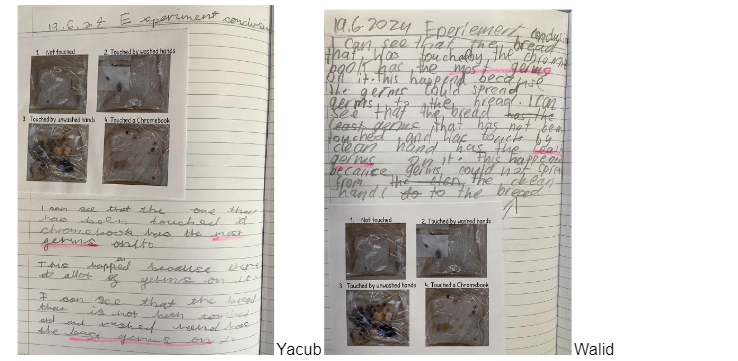 19.6.24 Experiment conclusion
1. Not touched
2. Touched by washed hands
3. Touched by unwashed hands
4. Touched a Chromebook
I can see that the one that
has been touched
chromebook has the most
germs onito
This happed on because there
at allot of germs on
I can see that the bread
that is not been touched
and washed hand has
the least germs on
Yacub
19.6.2024 Eperiement conclusi
I can see that the bread
that was touched by the chrome
book has the most germs
on it. this happend because
the germs could spread
germs to the bread. I can
see that the bread has the
least germs that has not been
touched and was touch by
clean hand has the least
germs on it. this happen
because germs could not
from the the clean
hands do to the bread
1. Not touched
2. Touched by washed hands
3. Touched by unwashed hands
4. Touched a Chromebook
Walid